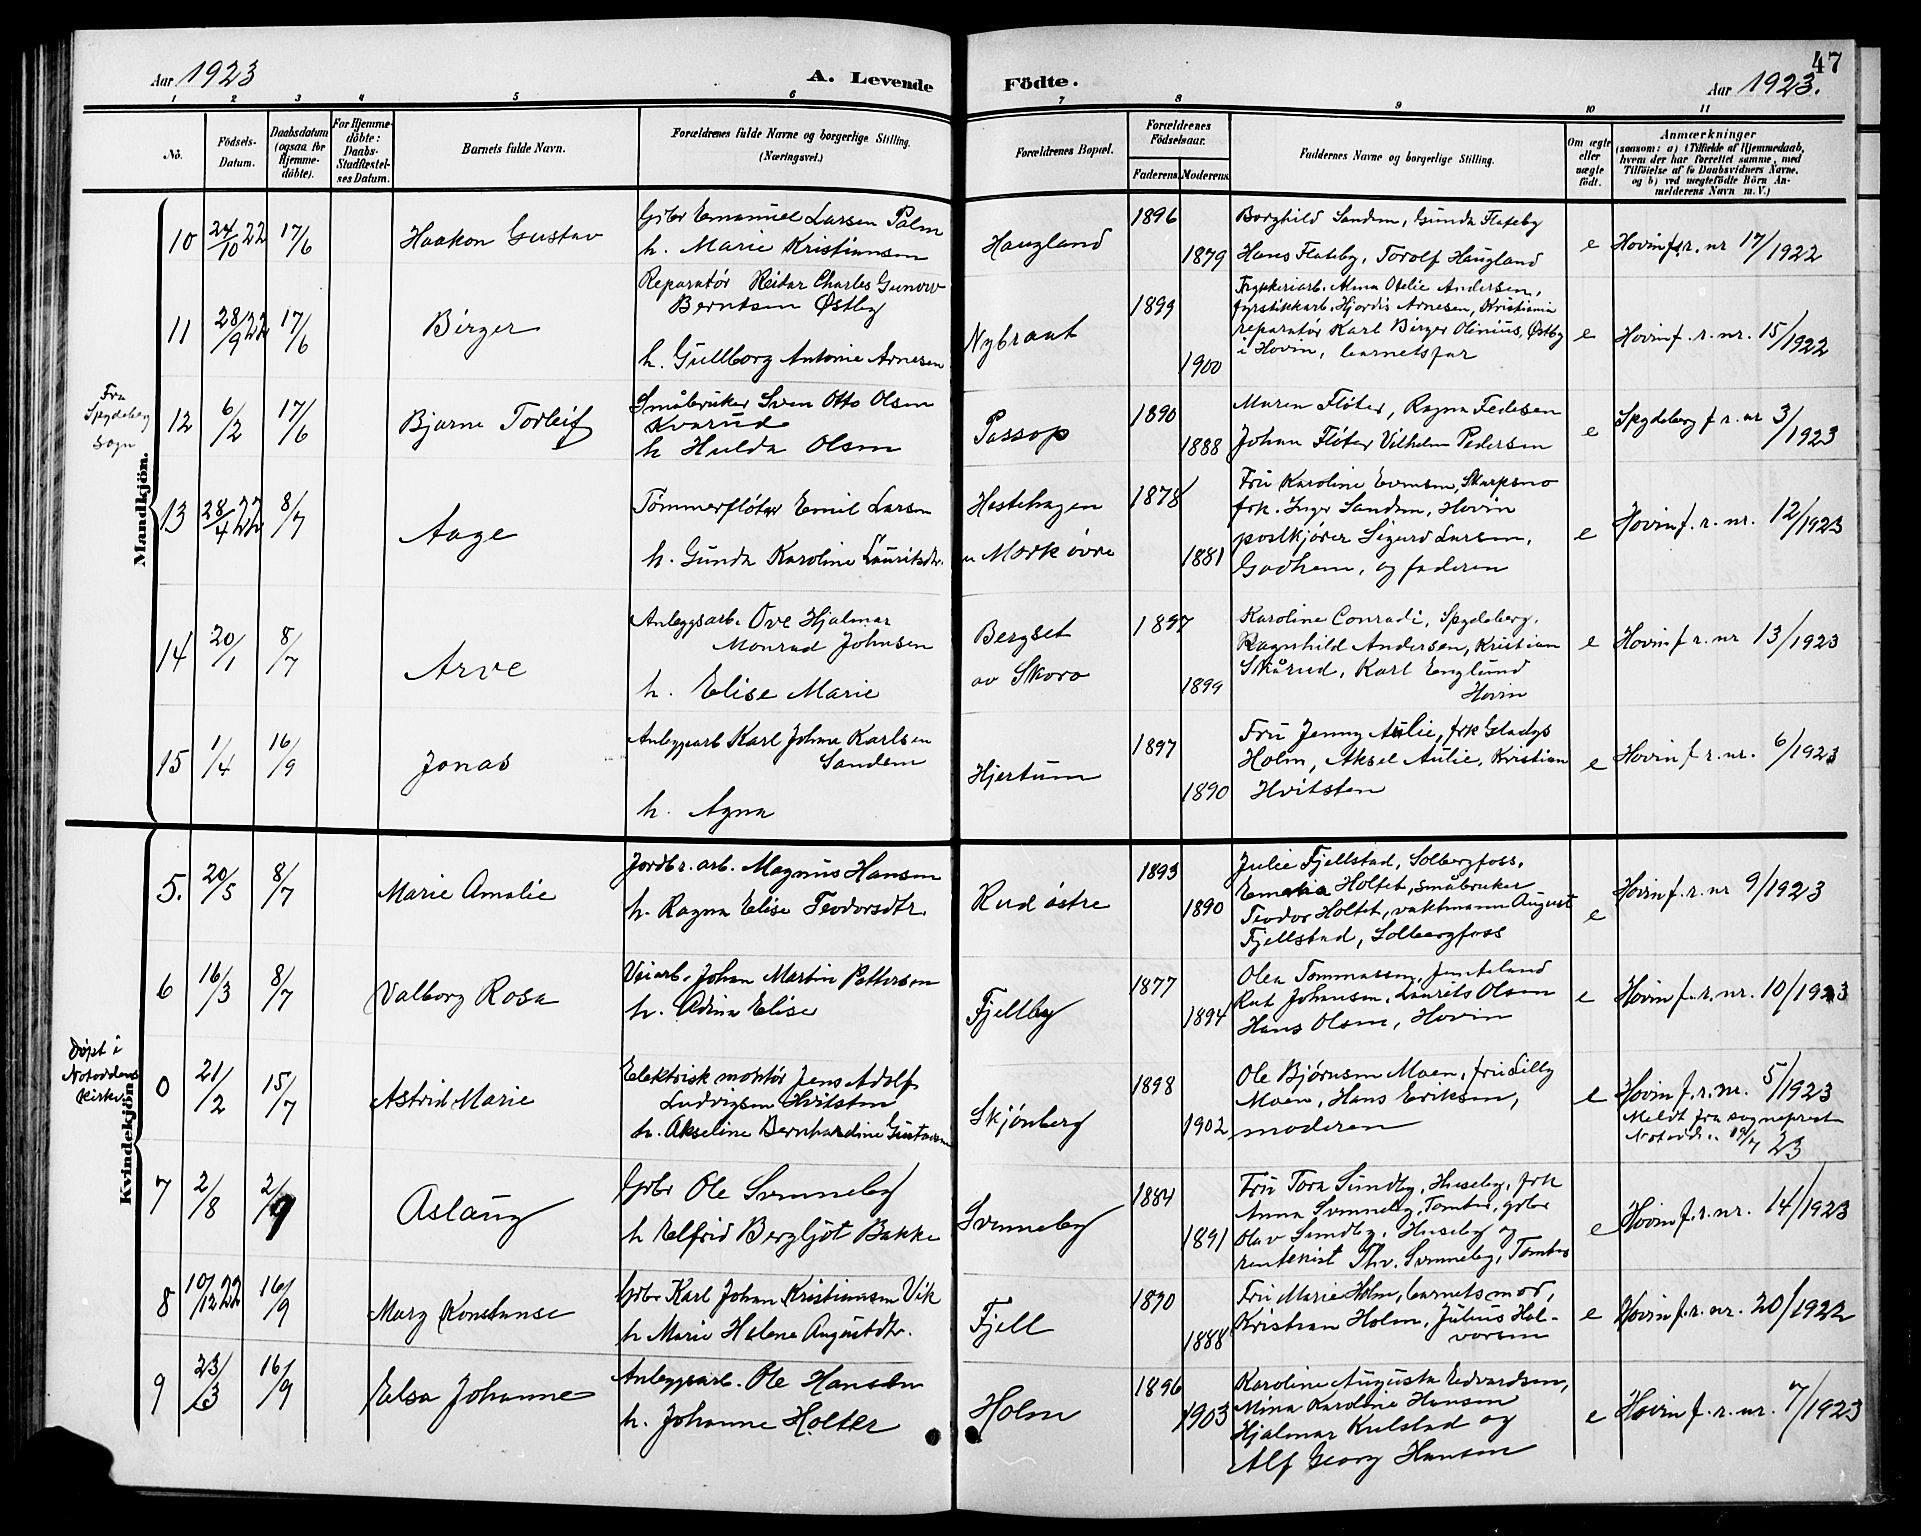 47
Aar 1923
A. Levende
Födte.
Aar 1923.
1 2 3 4 5 6 7 8 9 10 11
Nö.
Födsels-
Datum.
Daabsdatum
(ogsaa for
Hjemme-
döbte).
For Hjemme-
döbte:
Daabs-
Stadfæstel-
ses Datum.
Barnets fulde Navn.
Forældrenes fulde Navne og borgerlige Stilling.
(Næringsvei.)
Forældrenes Bopæl.
Forældrenes
Födselsaar.
Faderens. Moderens.
Faddernes Navne og borgerlige Stilling.
Om ægte
eller
uægte
födt.
Anmærkninger
(saasom: a) i Tilfælde af Hjemmedaab,
hvem der har forrettet samme, med
Tilföielse af to Daabsvidners Navne,
og b) ved uægtefödte Börn An-
melderens Navn m. V.)
Mandkjön.
10 24/10 22 17/6 Haakon Gustav
Gbr Emanuel Larsen Palm
h. Marie Kristiansen
Haugland
1896
1879
Borghild Sandem, Gunda Flateby
Hans Flateby, Torolf Haugland
e Hovin f. r. nr 17/1922
11 28/9 22 17/6 Birger
Reparatør Reidar Charles Gunerv
Berntsen Østby
h. Gullborg Antonie Arnesen
Nybraat
1899
1900
Trykkeriarb. Anna Otelie Andersen,
fyrstikkarb. Hjørdis Arnesen, Kristiania
reparatør Karl Birger Olenius, Østby
i Hovin, barnetsfar
e Hovin f. r. nr. 15/1922
Fra
Spydeberg
sogn
12 6/2 17/6 Bjarne Torleif
Småbruker Sven Otto Olsen
Kvarud
h Hulda Olsen
Passop
1890
1888
Maren Fløter, Ragna Pedersen
Johan Fløter Vilhelm Pedersen
e Spydeberg f r. nr 3/1923
13 28/4 22 8/7 Aage
Tømmerfløter Emil Larsen
h. Gunda Karoline Lauritsdtr.
Hestehagen
u Mørk øvre
1878
1881
Fru Karoline Evensen, Skarpsno
frk. Inger Sandem, Hovin
postkjører Sigurd Larsen,
Godhem, og faderen
e Hovin f. r. nr. 12/1923
14 20/1 8/7 Arve
Anleggsarb. Ove Hjalmar
Monrad Johnsen
h. Elise Marie
Bergset
av Skoro
1897
1899
Karoline Conradi, Spydeberg,
Ragnhild Andersen, Kristian
Skårud, Karl Englund
Hovin
e Hovin f. r. nr 13/1923
15 1/4 16/9 Jonas
Anleggsarb Karl Johan Karlsen
Sandem
h. Agna
Hjertum
1897
1890
Fru Jenny Aulie, frk Gladys
Holm, Aksel Aulie, Kristian
Hvitsten
e Hovin f. r. nr. 6/1923
Kvindekjön.
5. 20/5 8/7 Marie Amalie
Jordbr. arb. Magnus Hansen
h. Ragna Elise Teodorsdtr.
Rud østre
1893
1890
Julie Fjellstad, Solbergfoss,
Holtet, småbruker
Teodor Holtet, vaktmann August
Fjellstad, Solbergfoss
e Hovin f. r. nr 9/1923
6 16/3 8/7 Valborg Rosa
Veiarb. Johan Martin Pettersen
h. Adina Elise
Fjellby
1877
1894
Olea Tommassen,
Rut Johansen, Laurits Olsen
Hans Olsen, Hovin
e Hovin f. r. nr. 10/1923
Døpt i
Notoddens
kirke
0 21/2 15/7 Astrid Marie
Elektrisk montør Jens Adolf
Ludvigsen Hvitsten
h. Akseline Bernhardine Gustavsen
Skjønberg
1898
1902
Ole Bjørnsen Moen, fru Lilly
Moen, Hans Eriksen,
moderen
e Hovin f. r. nr. 5/1923
Meldt fra sogneprest
Notodd. 19/7 23
7 2/8 2/9 Aslaug
Gbr Ole Svenneby
h Elfrid Bergljot Bakke
Svenneby
1884
1891
Fru Tora Sundby, Huseby, frk
Anna Svenneby, Tomter, gbr
Olav Sundby, Huseby og
rentenist Thv. Svenneby, Tomter
e Hovin f. r. nr. 14/1923
8 10/12 22 16/9 Mary Konstanse
Gbr Karl Johan Kristiansen Vik
h Marie Helene Augustdtr.
Fjell
1890
1888
Fru Marie Holm, barnets mor,
Kristian Holm, Julius Hal-
vorsen
e Hovin f. r. nr. 20/1922
9 23/3 16/9 Elsa Johanne
Anleggsarb. Ole Hansen
h. Johanne Holter
Holm
1896
1903
Karoline Augusta Edvardsen,
Mina Karoline Hansen
Hjalmar Kulstad og
Alf Georg Hansen
e Hovin f. r. nr. 7/1923